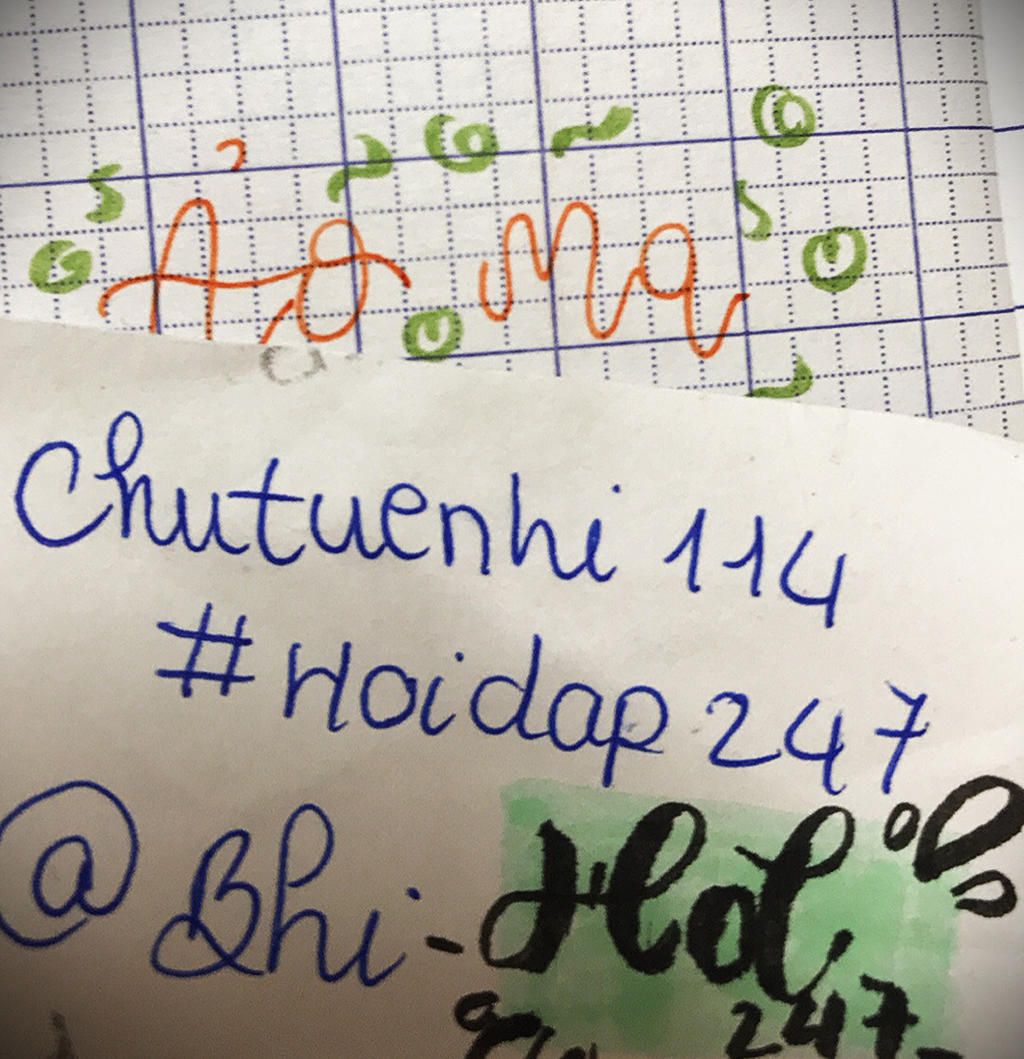 Ảo Ma
Chutuenhi 114
#Hoidap 247
@Bhi-
247